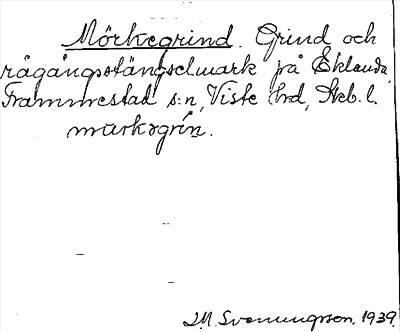 Mörkegrind. Grind och
rågångsstängselmark på Eklanda,
Frammestad s:n, Viste hrd, Skb. l.
markəgrín.
J.M. Svenungsson. 1939.